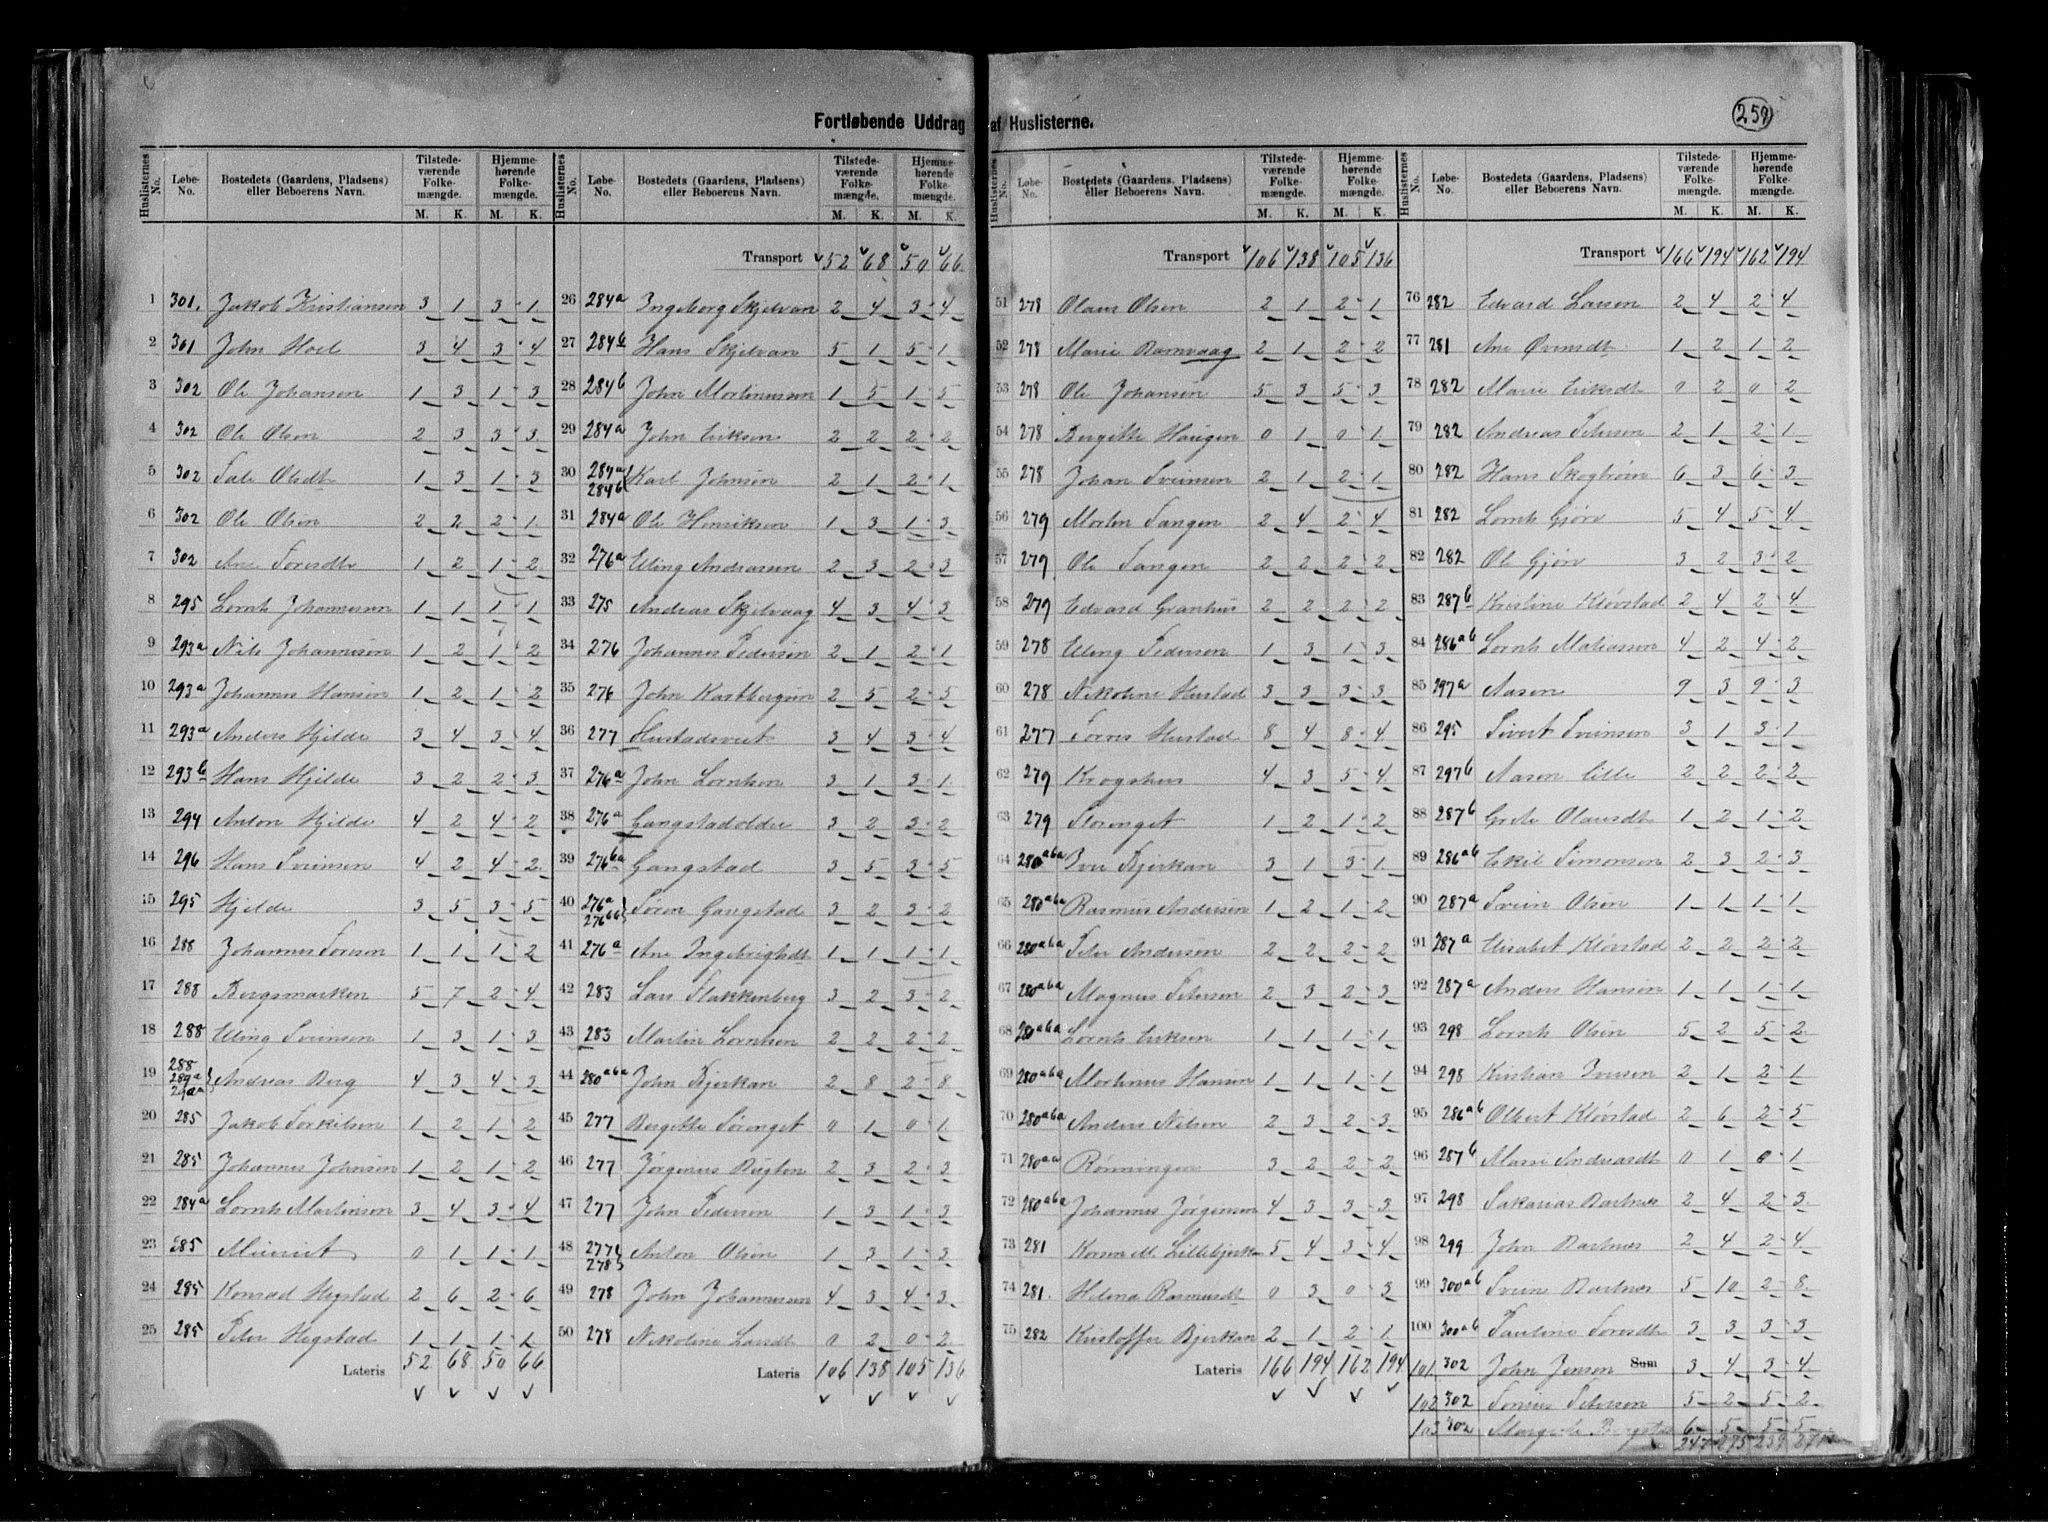 259
Fortløbende Uddrag af Huslisterne.
Huslisternes No. Løbe-No. Bostedets (Gaardens, Pladsens) eller Beboerens Navn. Tilstedeværende Folkemængde. M. K. Hjemmehørende Folkemængde. M. K.
1 301. Jakob Kristiansen 3 1 3 1
2 301 John Hoel 3 4 3 4
3 302 Ole Johansen 1 3 1 3
4 302 Ole Olsen 2 3 3 3
5 302 Olsdt 1 3 1 3
6 302 Ole Olsen 2 2 2 1
7 302 Ane Toresdt 1 2 1 2
8 295 Lornts Johannessen 1 1 1 1
9 293a Nils Johannesen 1 2 1 2
10 293a Johannes Hansen 1 2 1 2
11 293a Anders Hjelde 3 4 3 4
12 293b Hans Hjelde 3 2 2 3
13 294 Anton Hjelde 4 2 4 2
14 296 Hans Sveinsen 4 2 4 2
15 295 Hjelde 3 5 3 5
16 288 Johannes Toresen 1 1 1 2
17 288 Bergsmarken 5 7 2 4
18 288 Elling Sveinsen 1 3 1 3
19 288 289a Andreas Berg 4 3 4 3
20 285 Jakob Torkilsen 1 2 1 2
21 285 Johannes Johnsen 1 2 1 2
22 284a Lornts Martinsen 3 4 3 4
23 285 0 1 1 1
24 285 Konrad Hegstad 2 6 2 6
25 285 Peter Hegstad 1 1 1 1
Lateris 52 68 50 66
Huslisternes No. Løbe-No. Bostedets (Gaardens, Pladsens) eller Beboerens Navn. Tilstedeværende Folkemængde. M. K. Hjemmehørende Folkemængde. M. K.
Transport 52 68 50 66
26 284a Ingeborg Skjelvan 2 4 3 4
27 284b Hans Skjelvan 5 1 5 1
28 284b John Mortinussen 1 5 1 5
29 284a John Eriksen 2 2 2 2
30 284a 284b Karl Johnsen 2 1 2 1
31 284a Ole Henriksen 1 3 1 3
32 276a Elling Andreassen 2 3 2 3
33 275 Andreas Skjelvaag 4 3 4 3
34 276 Johannes Pedersen 2 1 2 1
35 276 John Kastbergsen 2 5 2 5
36 277 Hustadsveet 3 4 3 4
37 276a John Lorntsen 3 1 3 1
38 276a Gangstadoldre 3 2 3 2
39 276ba Gangstad 3 5 3 5
40 276a 276bb Søren Gangstad 3 2 3 2
41 276a Ane Ingebrigtsdt 1 1 1 1
42 283 Lars Flakkenberg 3 2 3 2
43 283 Martin Lorntsen 2 2 2 2
44 280aba John Bjerkan 2 8 2 8
45 277 Bergitte Sørenget 0 1 0 1
46 277 Jørgenus Bugten 2 3 2 3
47 277 John Pedersen 1 3 1 3
48 277 278 Anton Olsen 1 3 1 3
49 278 John Johannessen 4 3 4 3
50 278 Nikoline Larsdt 0 2 0 2
Lateris 106 138 105 136
Huslisternes No. Løbe-No. Bostedets (Gaardens, Pladsens) eller Beboerens Navn. Tilstedeværende Folkemængde. M. K. Hjemmehørende Folkemængde. M. K.
Transport 106 138 105 136
51 278 Olaus Olsen 2 1 2 1
52 278 Marie Ramvaag 2 1 2 2
53 278 Ole Johansen 5 3 5 3
54 278 Bergitte Haugen 0 1 0 1
55 278 Johan Sveinsen 2 1 2 1
56 279 Morten Tangen 2 4 2 4
57 279 Ole Tangen 2 2 2 2
58 279 Edvard Granhus 2 2 2 2
59 278 Elling Pedersen 1 3 1 3
60 278 Nikoline Hustad 3 3 3 3
61 277 Torres Hustad 8 4 8 4
62 279 Krogshus 4 3 5 4
63 279 Storenget 1 2 1 2
64 280aba Iver Bjerkan 3 1 3 1
65 280aba Rasmus Andersen 1 2 1 2
66 280aba Peter Andersen 2 2 2 2
67 280aba Magnus Petersen 2 3 2 3
68 280aba Lornts Eriksen 1 1 1 1
69 280aba Mortinus Hansen 1 1 1 1
70 280aba Anders Nilsen 2 3 2 3
71 280aa Rønningen 3 2 2 2
72 280aba Johannes Jørgensen 4 3 3 3
73 281 Karen M. Lillebjerk 5 4 3 4
74 281. Helena Rasmusdt 0 3 0 3
75 282 Kristoffer Bjerkan 2 1 2 1
Lateris 166 194 162 194
Huslisternes No. Løbe-No. Bostedets (Gaardens, Pladsens) eller Beboerens Navn. Tilstedeværende Folkemængde. M. K. Hjemmehørende Folkemængde. M. K.
Transport 166 194 162 194
76 282 Edvard Larsen 2 4 2 4
77 281 Ane Øvensdt 1 2 1 2
78 282 Marie Eriksdt 0 2 0 2
79 282 Andreas Petersen 2 1 2 1
80 282 Hans Skogtrøen 6 3 6 3
81 282 Lornts Gjørv 5 4 5 4
82 282 Ole Gjørv 3 2 3 2
83 287b Kristine Kløvstad 2 4 2 4
84 286ab Lornts Matiassen 4 2 4 2
85 297a Aasen 9 3 9 3
86 295 Sivert Sveinsen 3 1 3 1
87 297b Aasen lille 2 2 2 2
88 287b Grete Olausdt 1 2 1 2
89 286ab Eskil Simonsen 2 3 2 3
90 287a Svein Olsen 1 1 1 1
91 287a Elisabet Kløvstad 2 2 2 2
92 287a Anders Hansen 1 1 1 1
93 298 Lornts Olsen 5 2 5 2
94 298 Kristian Iversen 2 1 2 1
95 286ab Olbert Kløvstad 2 6 2 5
96 287b Marie Andreasdt 0 1 0 1
97 298 Sakarias Bartnes 2 4 2 3
98 299 John Bartnes 2 4 2 4
99 300ab Svein Bartnes 5 10 2 8
100 300ab Pauline Toresdt 3 3 3 3
101 302 John Jensen Sum 3 4 3 4
102 302 Petersen 5 2 5 2
103 302 6 5 5 5